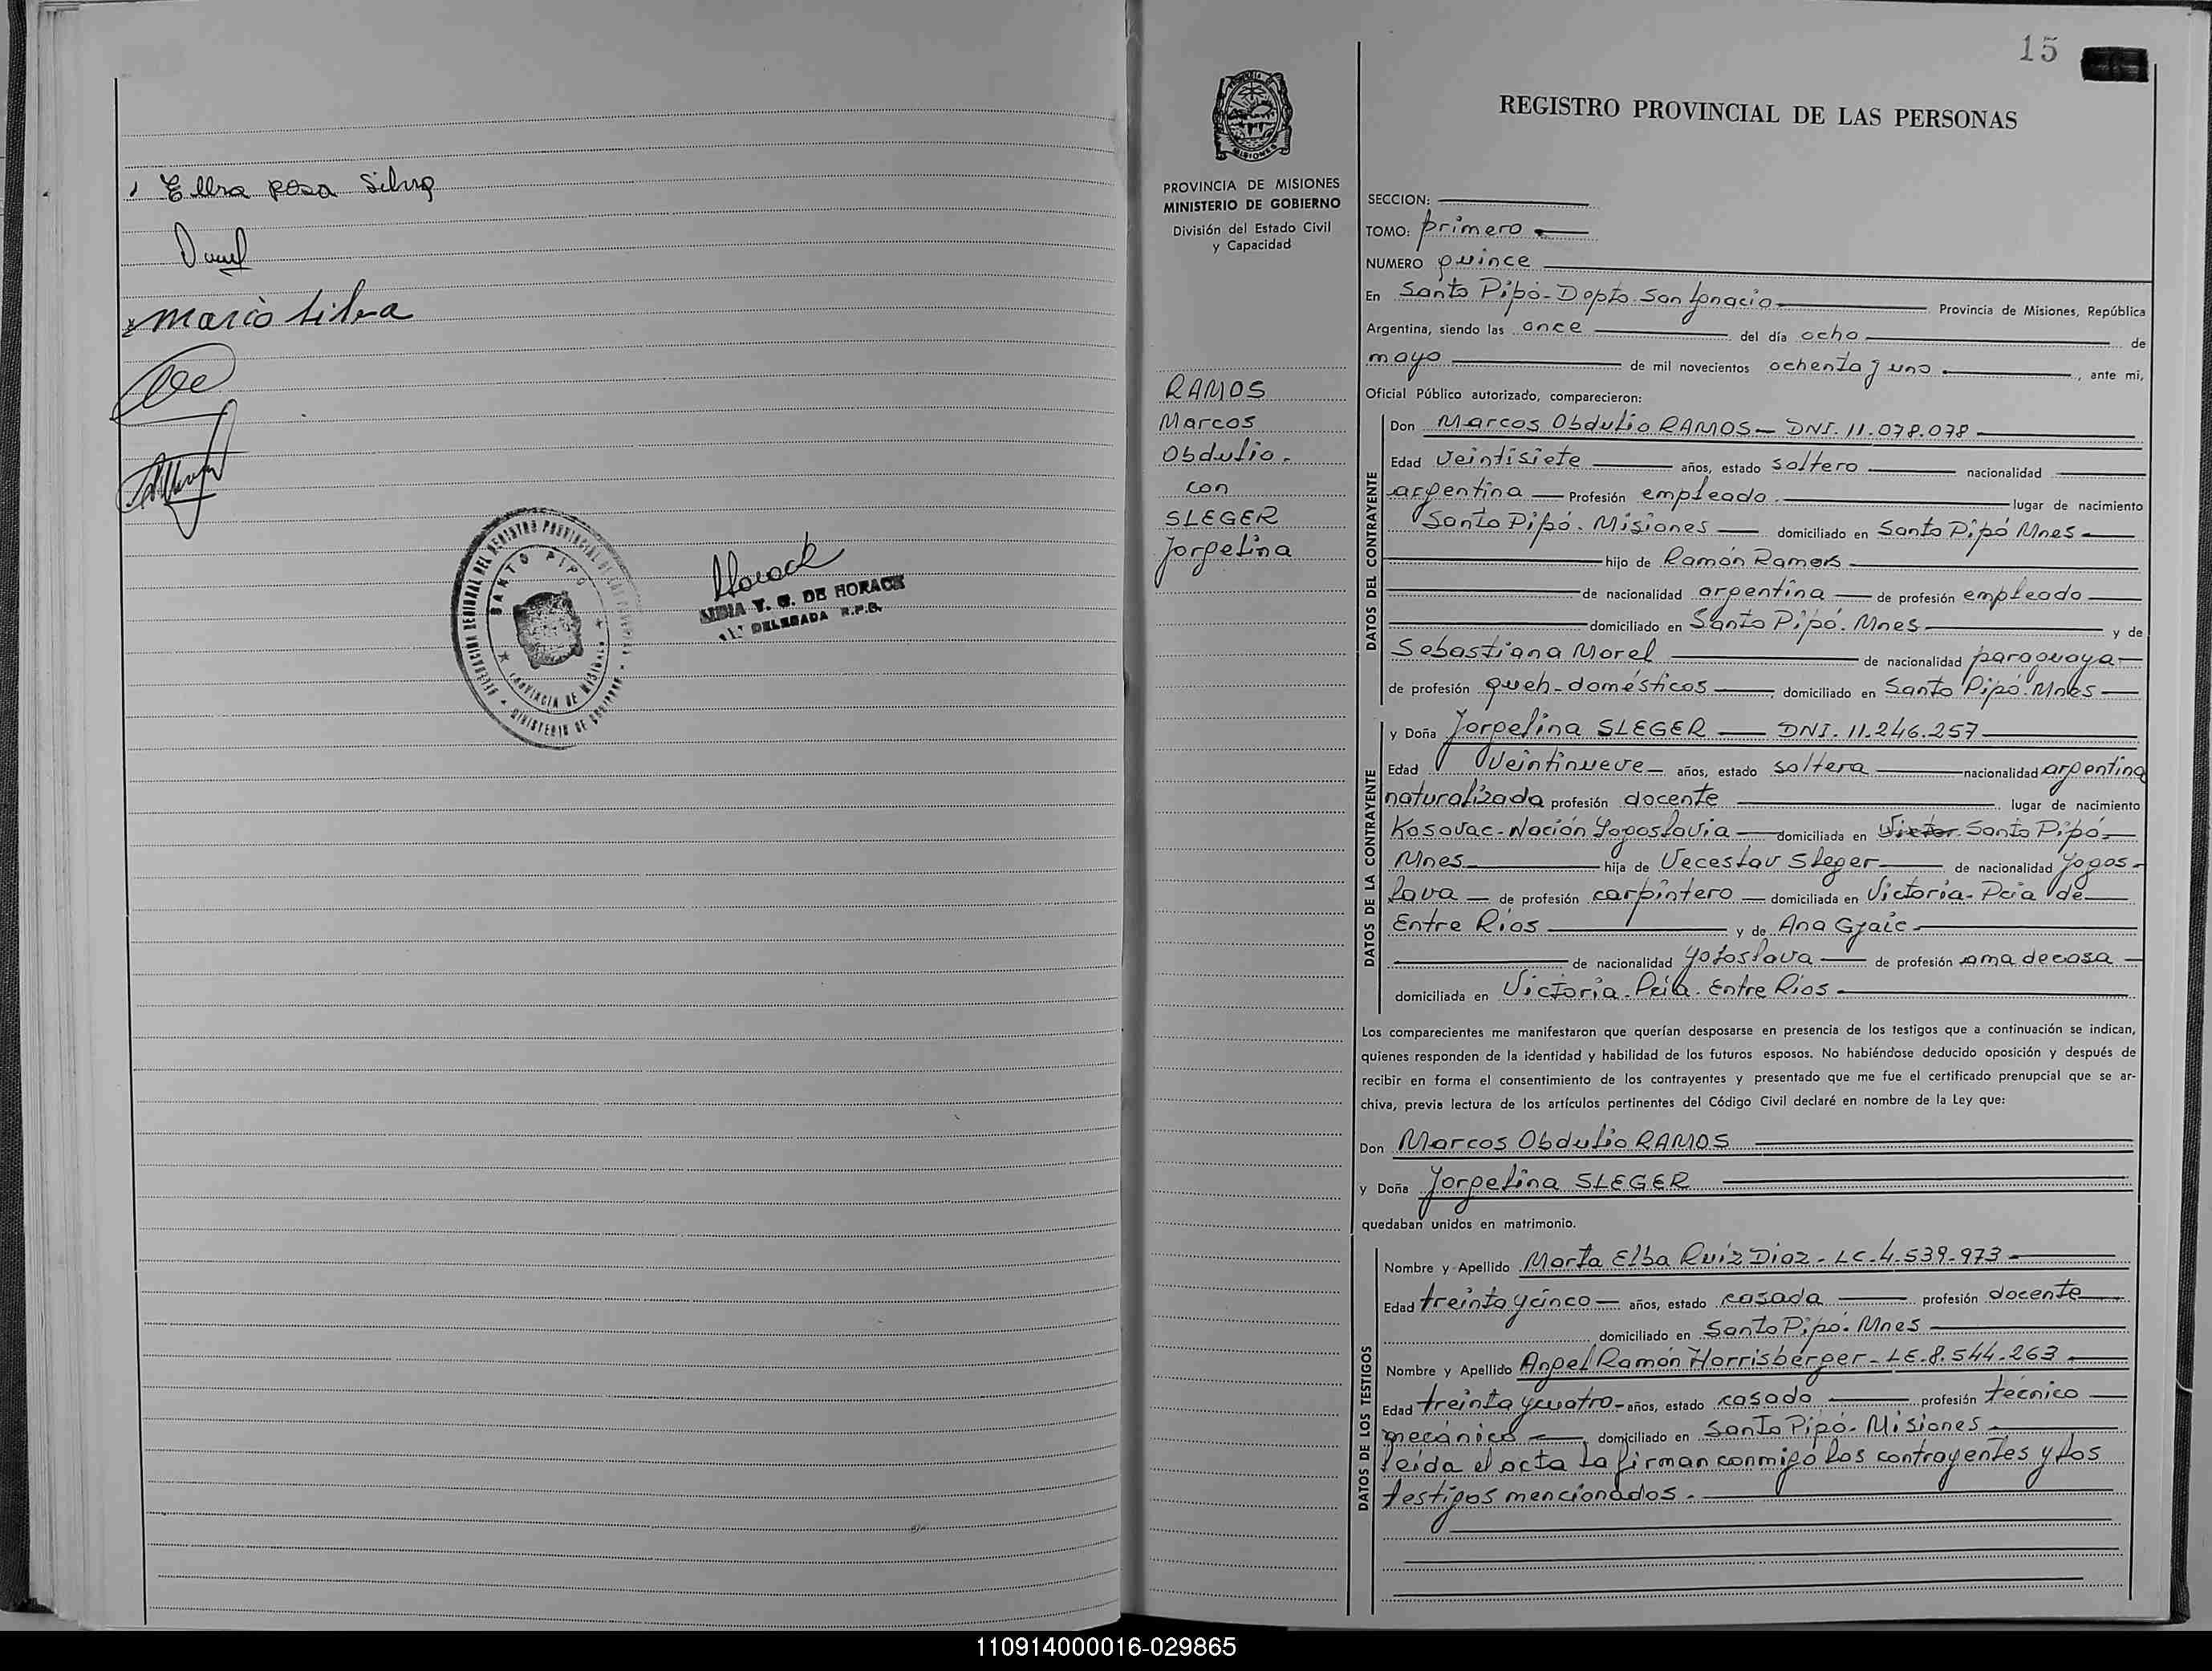 Elba rosa Silva
mario Silva
DELEGACION REGIONAL DEL REGISTRO PROVINCIAL DE LAS PERSONAS
SANTO PIPO
PROVINCIA DE MISIONES
MINISTERIO DE GOBIERNO
Horack
LIDIA Y. G. DE HORACK
DELEGADA R.P.P.
15
REGISTRO PROVINCIAL DE LAS PERSONAS
MISIONES
PROVINCIA DE MISIONES
MINISTERIO DE GOBIERNO
División del Estado Civil
y Capacidad
RAMOS
Marcos
Obdulio.
con
SLEGER
Jorgelina
SECCION:
TOMO: primero
NUMERO quince
En Santo Pipó - Depto. San Ignacio Provincia de Misiones, República
Argentina, siendo las once del día ocho de
mayo de mil novecientos ochenta y uno, ante mi,
Oficial Público autorizado, comparecieron:
DATOS DEL CONTRAYENTE
Don Marcos Obdulio RAMOS - DNI. 11.078.078
Edad Veintisiete años, estado soltero nacionalidad
argentina Profesión empleado lugar de nacimiento
Santo Pipó. Misiones domiciliado en Santo Pipó Mnes
hijo de Ramón Ramos
de nacionalidad argentina de profesión empleado
domiciliado en Santo Pipó. Mnes y de
Sebastiana Morel de nacionalidad paraguaya
de profesión queh-domésticos, domiciliado en Santo Pipó. Mnes
DATOS DE LA CONTRAYENTE
y Doña Jorgelina SLEGER DNI. 11.246.257
Edad Veintinueve años, estado soltera nacionalidad argentina
naturalizada profesión docente lugar de nacimiento
Kosovac - Nación Yogoslavia domiciliada en Victor Santo Pipó
Mnes hija de Veceslav Sleger de nacionalidad Yogos-
lava de profesión carpintero domiciliada en Victoria - Pcia de
Entre Rios y de Ana Gjaic
de nacionalidad Yogoslava de profesión ama de casa
domiciliada en Victoria. Pcia. Entre Rios
Los comparecientes me manifestaron que querían desposarse en presencia de los testigos que a continuación se indican,
quienes responden de la identidad y habilidad de los futuros esposos. No habiéndose deducido oposición y después de
recibir en forma el consentimiento de los contrayentes y presentado que me fue el certificado prenupcial que se ar-
chiva, previa lectura de los artículos pertinentes del Código Civil declaré en nombre de la Ley que:
Don Marcos Obdulio RAMOS
y Doña Jorgelina SLEGER
quedaban unidos en matrimonio.
DATOS DE LOS TESTIGOS
Nombre y Apellido Marta Elba Ruiz Diaz - LC. 4.539.973
Edad treinta y cinco años, estado casada profesión docente
domiciliado en Santo Pipó. Mnes
Nombre y Apellido Angel Ramón Horrisberger - LE. 8.544.263
Edad treinta y cuatro años, estado casado profesión técnico
mecánico domiciliado en Santo Pipó. Misiones
leida el acta la firman conmigo los contrayentes y los
testigos mencionados.
110914000016-029865